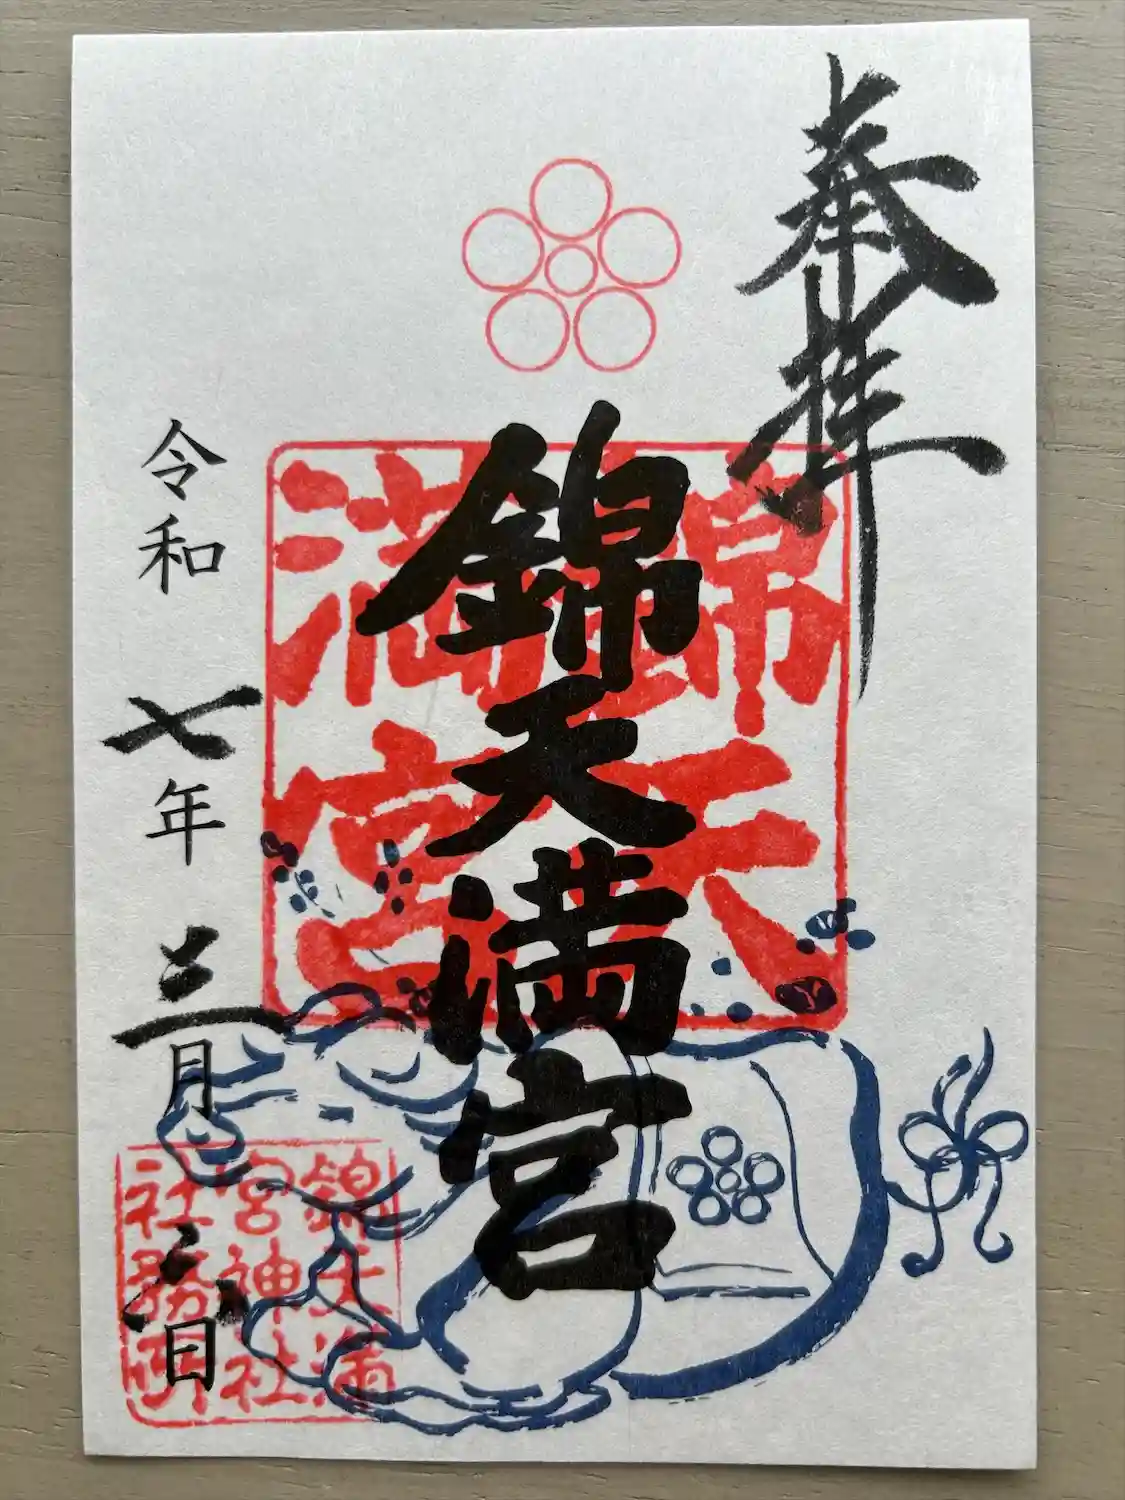 奉拝
錦天満宮
錦天
満宮
令和七年三月六日
錦天満
宮神社
社務所